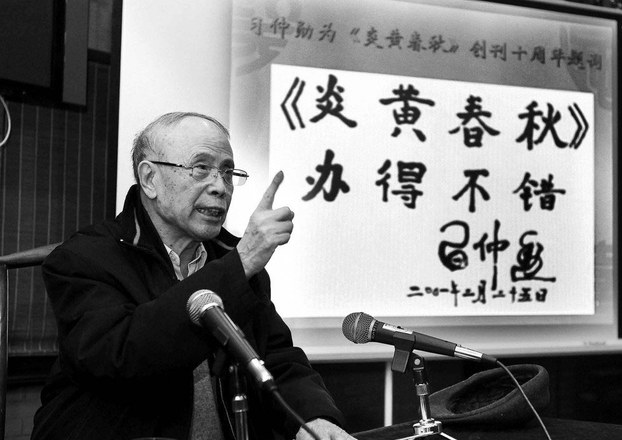 习仲勋为《炎黄春秋》创刊十周年题词
《炎黄春秋》
办得不错
习仲勋
二〇〇一年二月二十五日